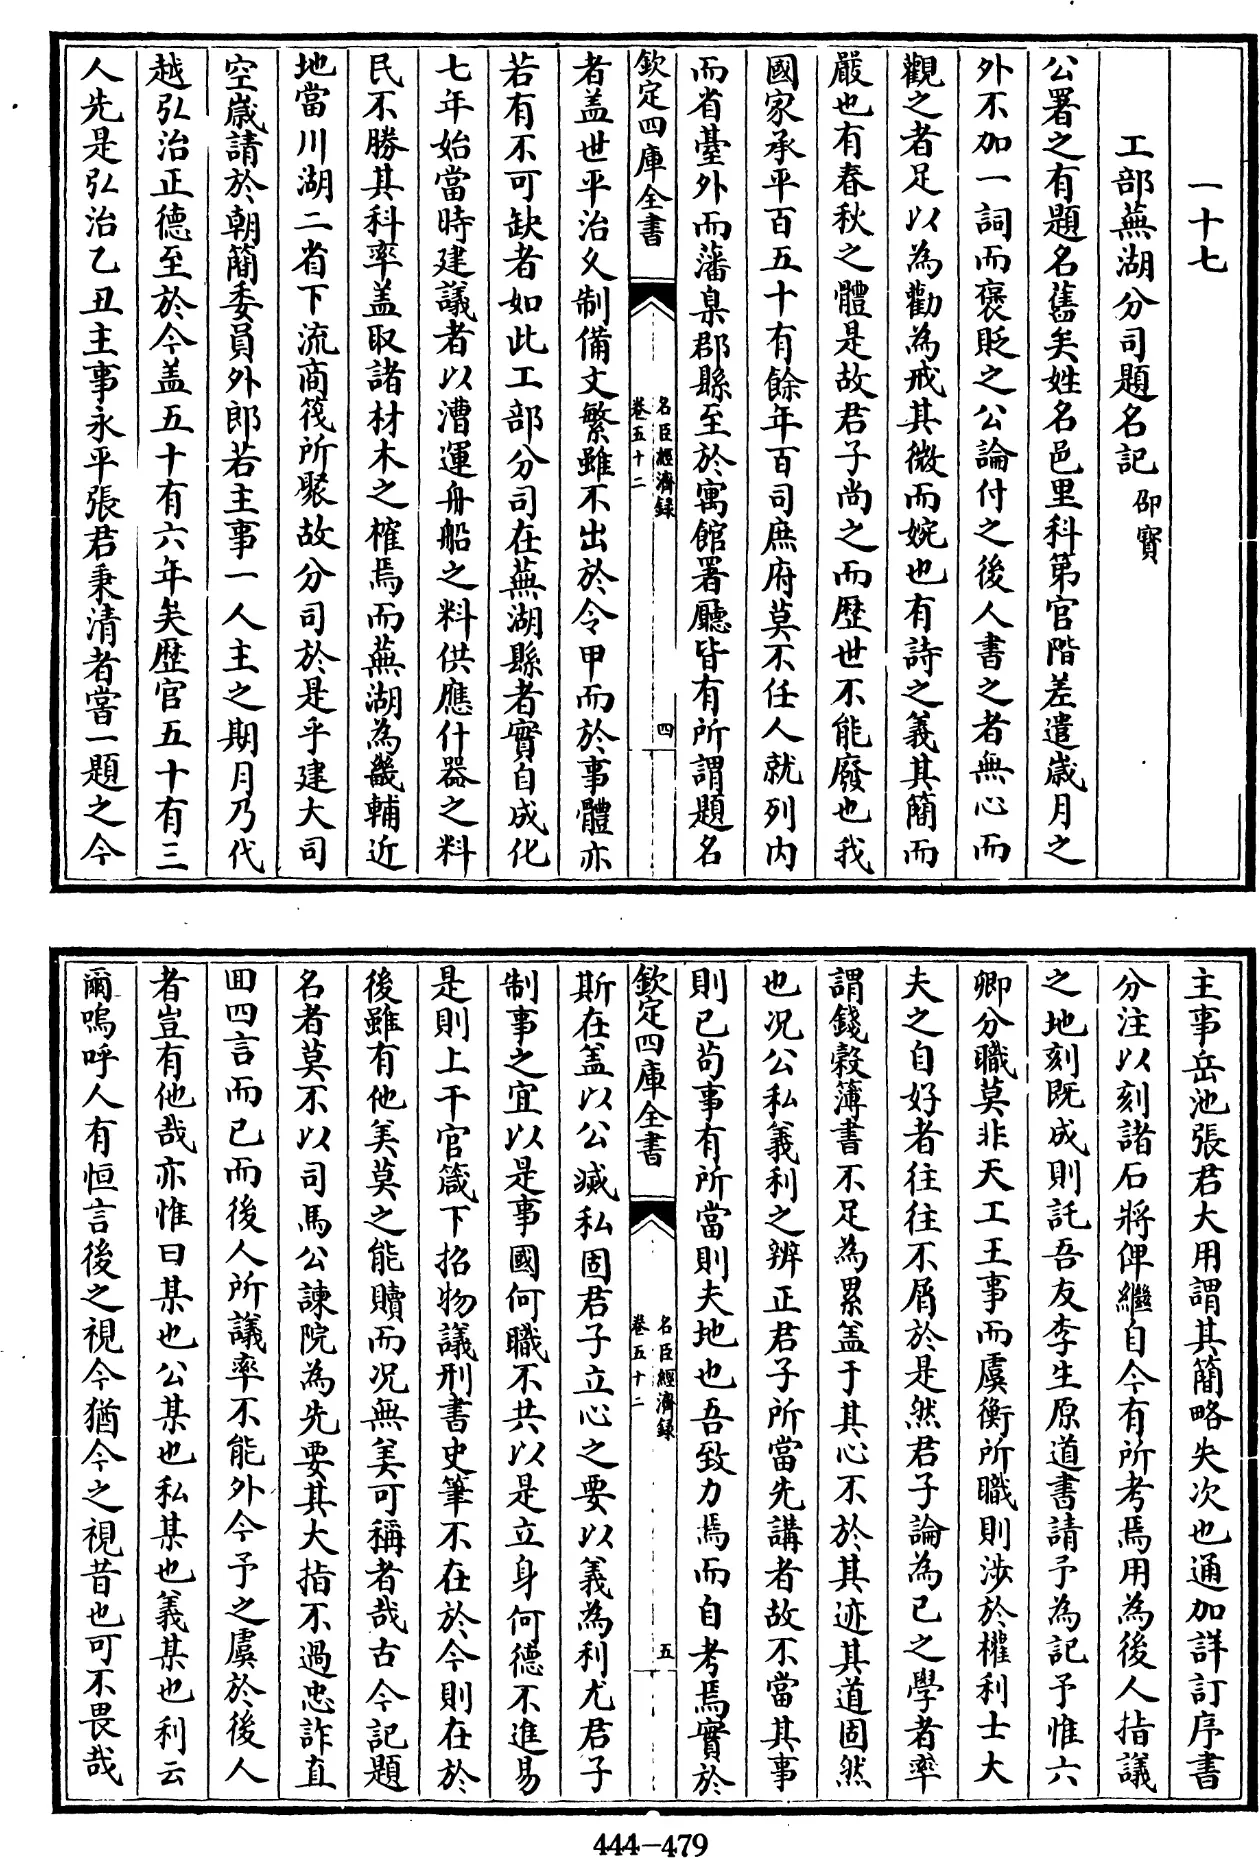 一十七
工部蕪湖分司題名記 邵寳
公署之有題名舊矣姓名邑里科第官階差遣歳月之
外不加一詞而褒貶之公論付之後人書之者無心而
觀之者足以為勸為戒其微而婉也有詩之義其簡而
嚴也有春秋之體是故君子尚之而歴世不能廢也我
國家承平百五十有餘年百司庶府莫不任人就列内
而省臺外而藩臬郡縣至於寓館署廳皆有所謂題名
欽定四庫全書
名臣經濟録
卷五十二
四
者盖世平治久制備文繁雖不出於令甲而於事體亦
若有不可缺者如此工部分司在蕪湖縣者實自成化
七年始當時建議者以漕運舟船之料供應什器之料
民不勝其科率盖取諸材木之榷焉而蕪湖為畿輔近
地當川湖二省下流商筏所聚故分司於是乎建大司
空嵗請於朝簡委員外郎若主事一人主之期月乃代
越弘治正德至於今盖五十有六年矣歴官五十有三
人先是弘治乙丑主事永平張君秉清者嘗一題之今
主事岳池張君大用謂其簡略失次也通加詳訂序書
分注以刻諸石將俾繼自今有所考焉用為後人指議
之地刻既成則託吾友李生原道書請予為記予惟六
卿分職莫非天工王事而虞衡所職則涉於權利士大
夫之自好者往往不屑於是然君子論為已之學者率
謂錢榖簿書不足為累盖于其心不於其迹其道固然
也况公私義利之辨正君子所當先講者故不當其事
則已苟事有所當則夫地也吾致力焉而自考焉實於
欽定四庫全書
名臣經濟録
卷五十二
五
斯在盖以公滅私固君子立心之要以義為利尤君子
制事之宜以是事國何職不共以是立身何德不進易
是則上干官箴下招物議刑書史筆不在於今則在於
後雖有他美莫之能贖而况無美可稱者哉古今記題
名者莫不以司馬公諫院為先要其大指不過忠詐直
囬四言而已而後人所議率不能外今予之虞於後人
者豈有他哉亦惟曰某也公某也私某也義某也利云
爾嗚呼人有恒言後之視今猶今之視昔也可不畏哉
444-479